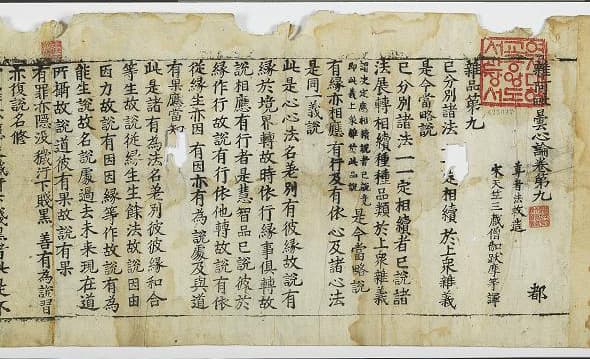 雜阿毗曇心論卷第九
都
尊者法救造
宋天竺三藏僧伽跋摩等譯
연세대학
교중앙도
서관장서
雜品第九
已分別諸法 定相續 於上眾雜義
是今當略說
已分別諸法一一定相續者已說諸
法展轉相續種種品類於上眾雜義
是今當略說
有緣亦相應 有行及有依 心及諸心法
是同一義說
此是心心法名差別有彼緣故說有
緣於境界轉故時依行緣事俱轉故
說相應有行者是慧智品已說彼於
緣作行故說有行依他轉故說有依
從緣生亦因 有因亦有為 說處及與道
有果應當知
此是諸有為法名差別彼彼緣和合
等生故說從緣生生餘法故說因由
因力故說有因因緣等作故說有為
能生說故名說處過去未來現在道
所攝故說道彼有果故說有果
有罪亦隱沒 穢汙下賤黑 善有為說習
亦復說名修